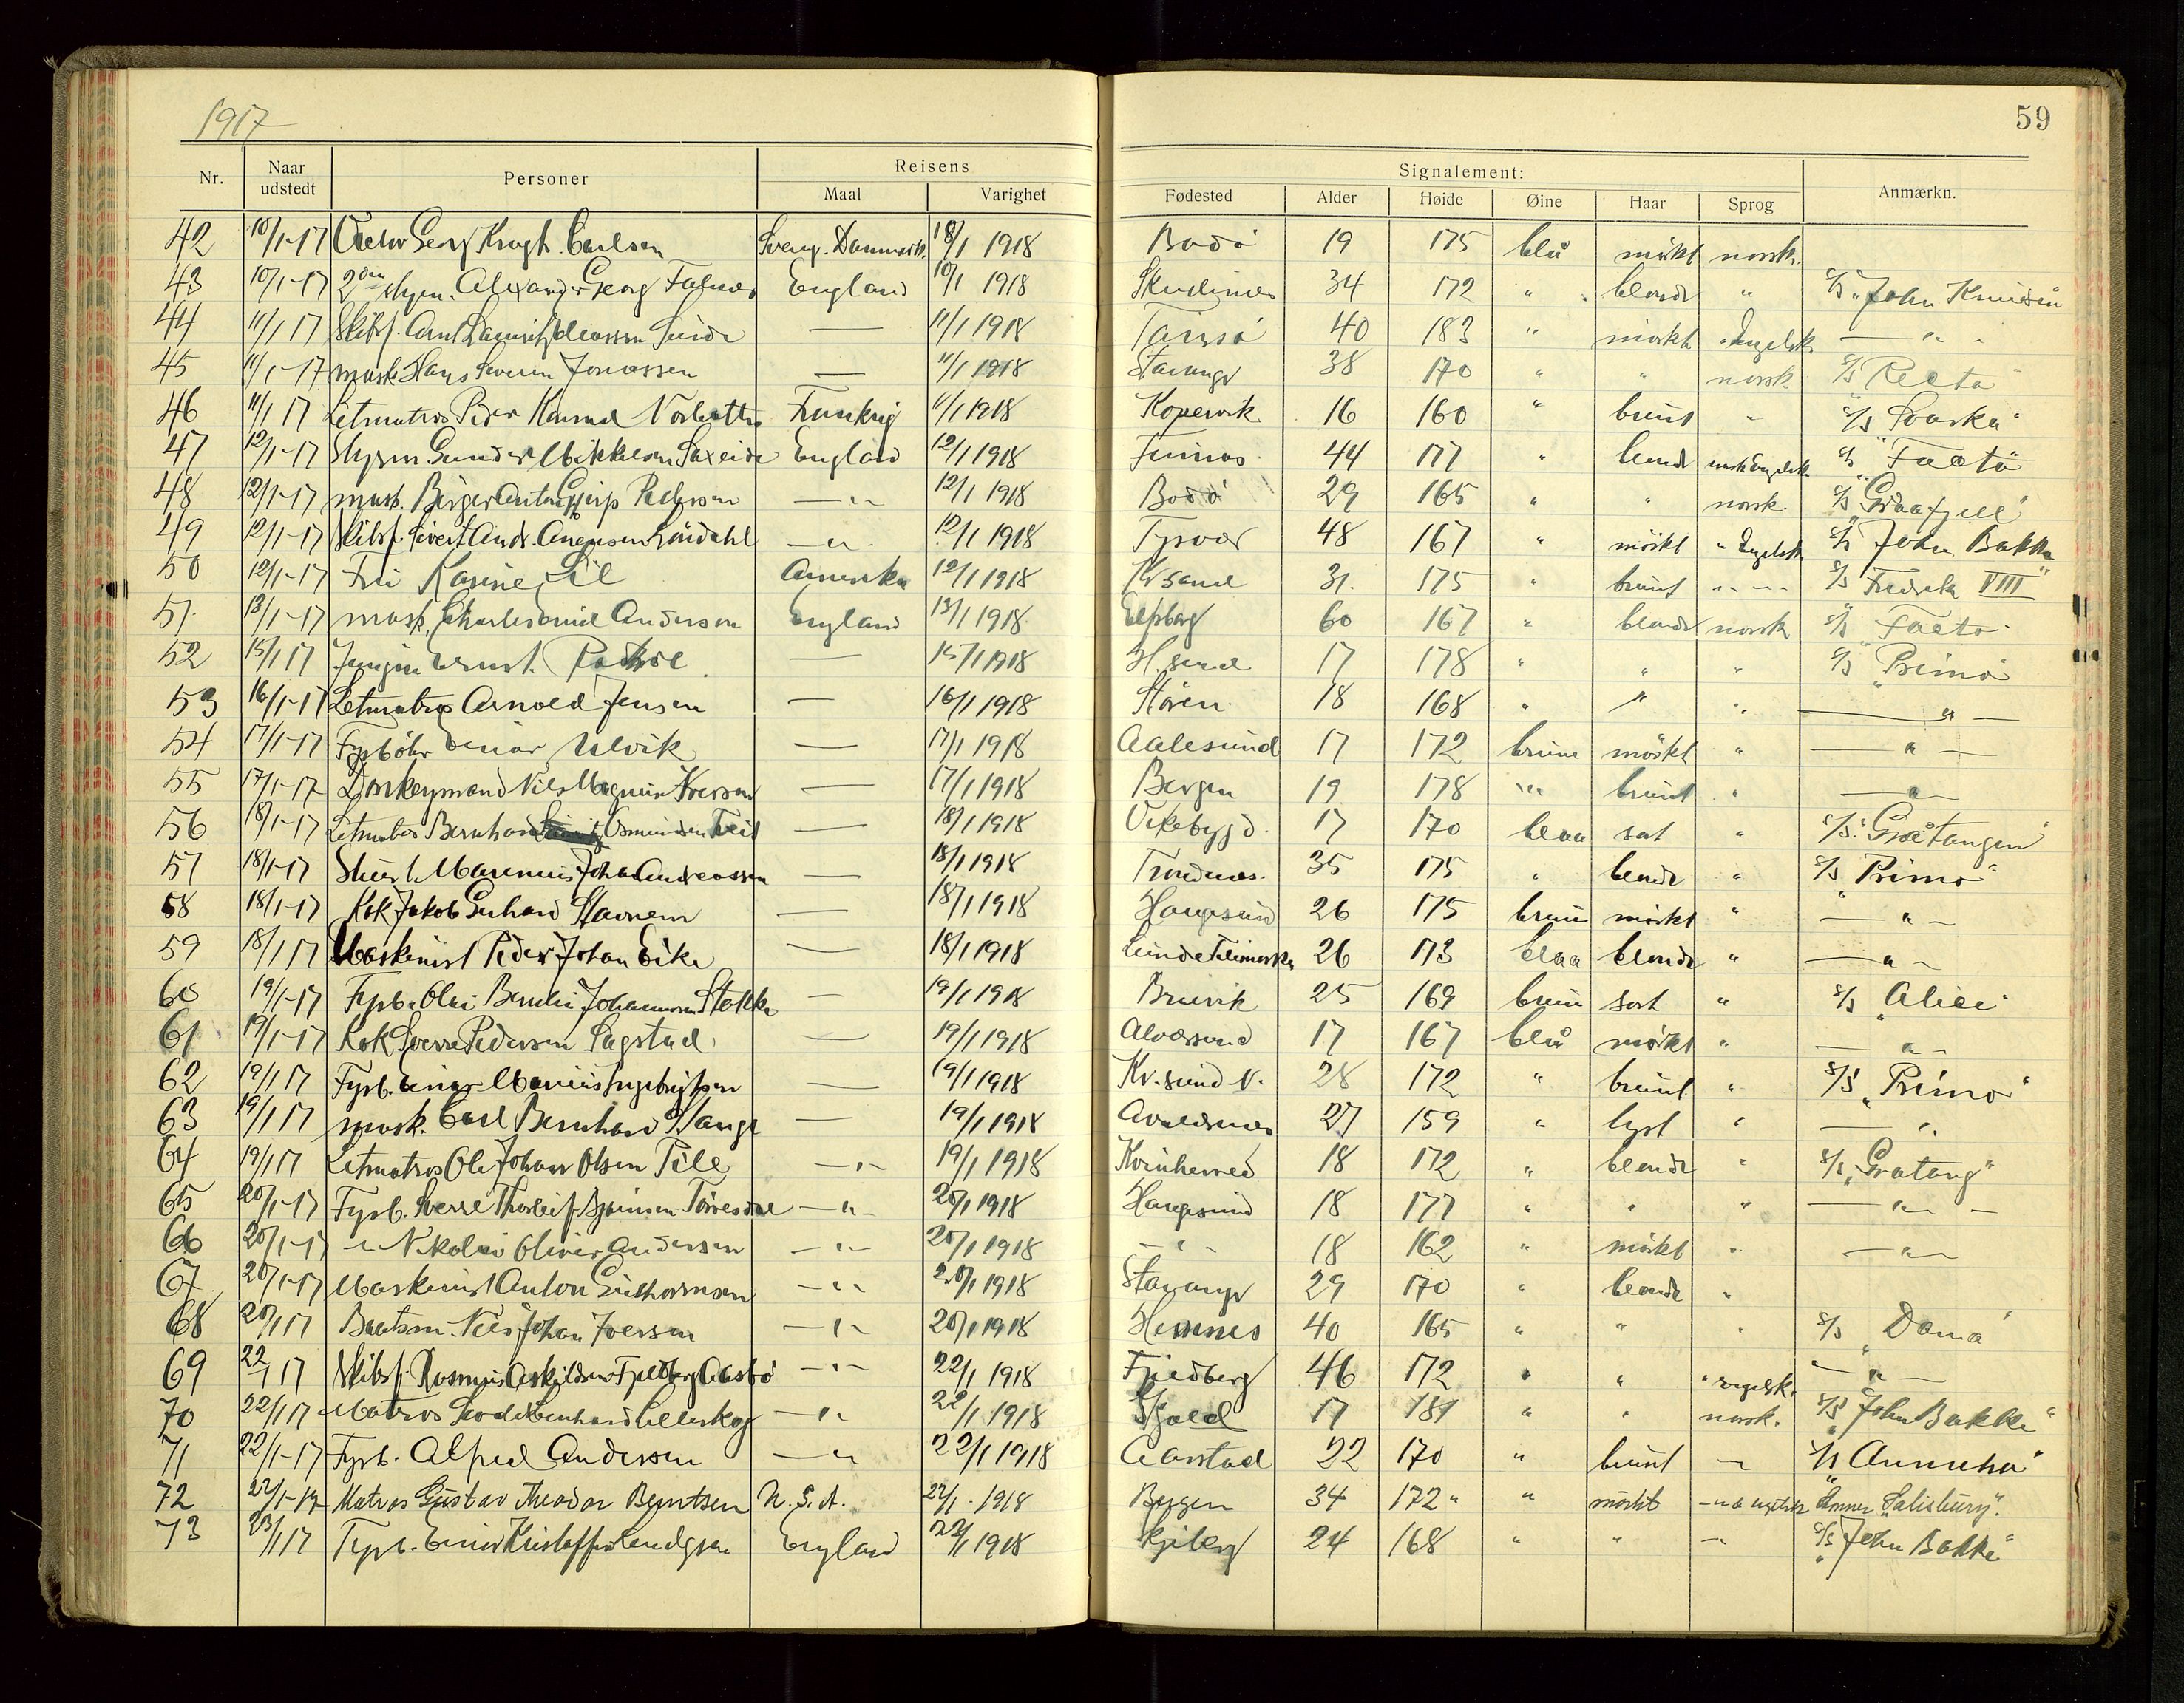 1917
59
Nr. Naar udstedt Personer Reisens Maal Varighet Signalement: Fødested Alder Høide Øine Haar Sprog Anmærkn.
42 10/1-17 Georg Krogh Carlsen Sverig. Danmark 18/1 1918 Bodö 19 175 blå mörkt norsk.
43 10/1-17 2den styrm. Alexander Georg Falnes England 10/1 1918 Skudenes 34 172 " blonde " S/S "John Knudsen
44 11/1 17 Skibsf. — 11/1 1918 40 183 " mörkt " Engelsk — " -
45 11/1-17 mask. Hans Severin Jonassen — 11/1 1918 Stavanger 38 170 " " norsk S/S "Recto"
46 11/1 17 Letmatros Peder Konrad Frankrig 11/1 1918 Kopervik 16 160 " brunt " S/S
47 12/1-17 Styrm. Gunder Mikkelsen Saxeide England 12/1 1918 44 177 " blonde norsk Engelsk S/S "Facto"
48 12/1-17 mask. Birger Anton Pedersen — " — 12/1 1918 Bodö 29 165 " " norsk. S/S "Graafjell"
49 12/1-17 Skibsf. Sivert Andr. — " . 12/1 1918 Tysvær 48 167 " mörkt " Engelsk S/S "John Bakke"
50 12/1-17 Amerika 12/1 1918 Kr sand 31. 175 " brunt " — " — S/S Fredrik VIII"
51 13/1-17 mask. Charles Emil Anderson England 13/1 1918 Elfsborg 60 167 " blonde norsk S/S "Facto"
52 15/1 17 Jungm. Ernst — 15/1 1918 H. sund 17 178 " " " S/S "Primo"
53 16/1-17 Letmatros Arnold Jensen — 16/1 1918 Stören 18 168 " " " — " —
54 17/1-17 Fyrböter Einar Ulvik — 17/1 1918 Aalesund 17 172 brune mörkt " — " —
55 17/1-17 Donkeymand Nils Magnus Iversen — 17/1 1918 Bergen 19 178 " brunt " — " —
56 18/1-17 Letmatros Bernhard Osmundsen — 18/1 1918 Vikebygd 17 170 blaa sort " S/S. "Gratangen"
57 18/1-17 Stuert Johan Andreassen — 18/1 1918 Trondenes. 35 175 " blonde " S/S "Primo"
58 18/1-17 Kok Jakob Gerhard Stavnem — 18/1 1918 Haugesund 26 175 brune mörkt " — " —
59 18/1 17 Maskinist Peder Johan Eike — 18/1 1918 Lunde Telemarken 26 173 blaa blonde " — " —
60 19/1-17 Fyrb. Olai Johannesen Stokka — 19/1 1918 Bruvik 25 169 brun sort " S/S "Alice"
61 19/1-17 Kok Sverre Pedersen Sagstad — 19/1 1918 Alversund 17 167 blå mörkt " — " —
62 19/1 17 Fyrb. Einar Marius Ingebrigtsen — 19/1 1918 Kr. sund N. 28 172 " brunt " S/S "Primo"
63 19/1 17 mask. Carl Bernhard Stange — 19/1 1918 Avaldsnes 27 159 " lyst " — " .
64 19/1 17 Letmatros Ole Johan Olsen — " — 19/1 1918 Kvinherred 18 172 " blonde " S/S "Gratang"
65 20/1-17 Fyrb. Sverre Thorleif — " — 20/1 1918 Haugesund 18 177 " " " — " —
66 20/1-17 — " Nikolai Oliver Andersen — " — 20/1 1918 — " — 18 162 " mörkt " — " —
67 20/1-17 Maskinist Anton Guthormsen — " — 20/1 1918 Stavanger 29 170 " blonde "
68 20/1 17 Baatsm. Nils Johan Iversen — " — 20/1 1918 Hemnes 40 165 " " " S/S "Dana"
69 22/1 17 Skibsf. Rasmus Askildsen Fjeldberg Aasbö — " — 22/1 1918 Fjeldberg 46 172 " " " engelsk. — " —
70 22/1 17 Matros Lenhard — " — 22/1 1918 Skjold 17 181 " " norsk. S/S "John Bakke"
71 22/1-17 Fyrb. Alfred Andersen — " — 22/1 1918 Aarstad 22 170 " brunt — " S/S
72 22/1-17 Matros Gustav Theodor Berntsen U. S. A. 22/1 - 1918 Bergen 34 172 " " mörkt — " & engelsk "Salisbury".
73 23/1 17 Fyrb. Einar Kristoffer England 22/1 1918 24 168 " " — " S/S "John Bakke"